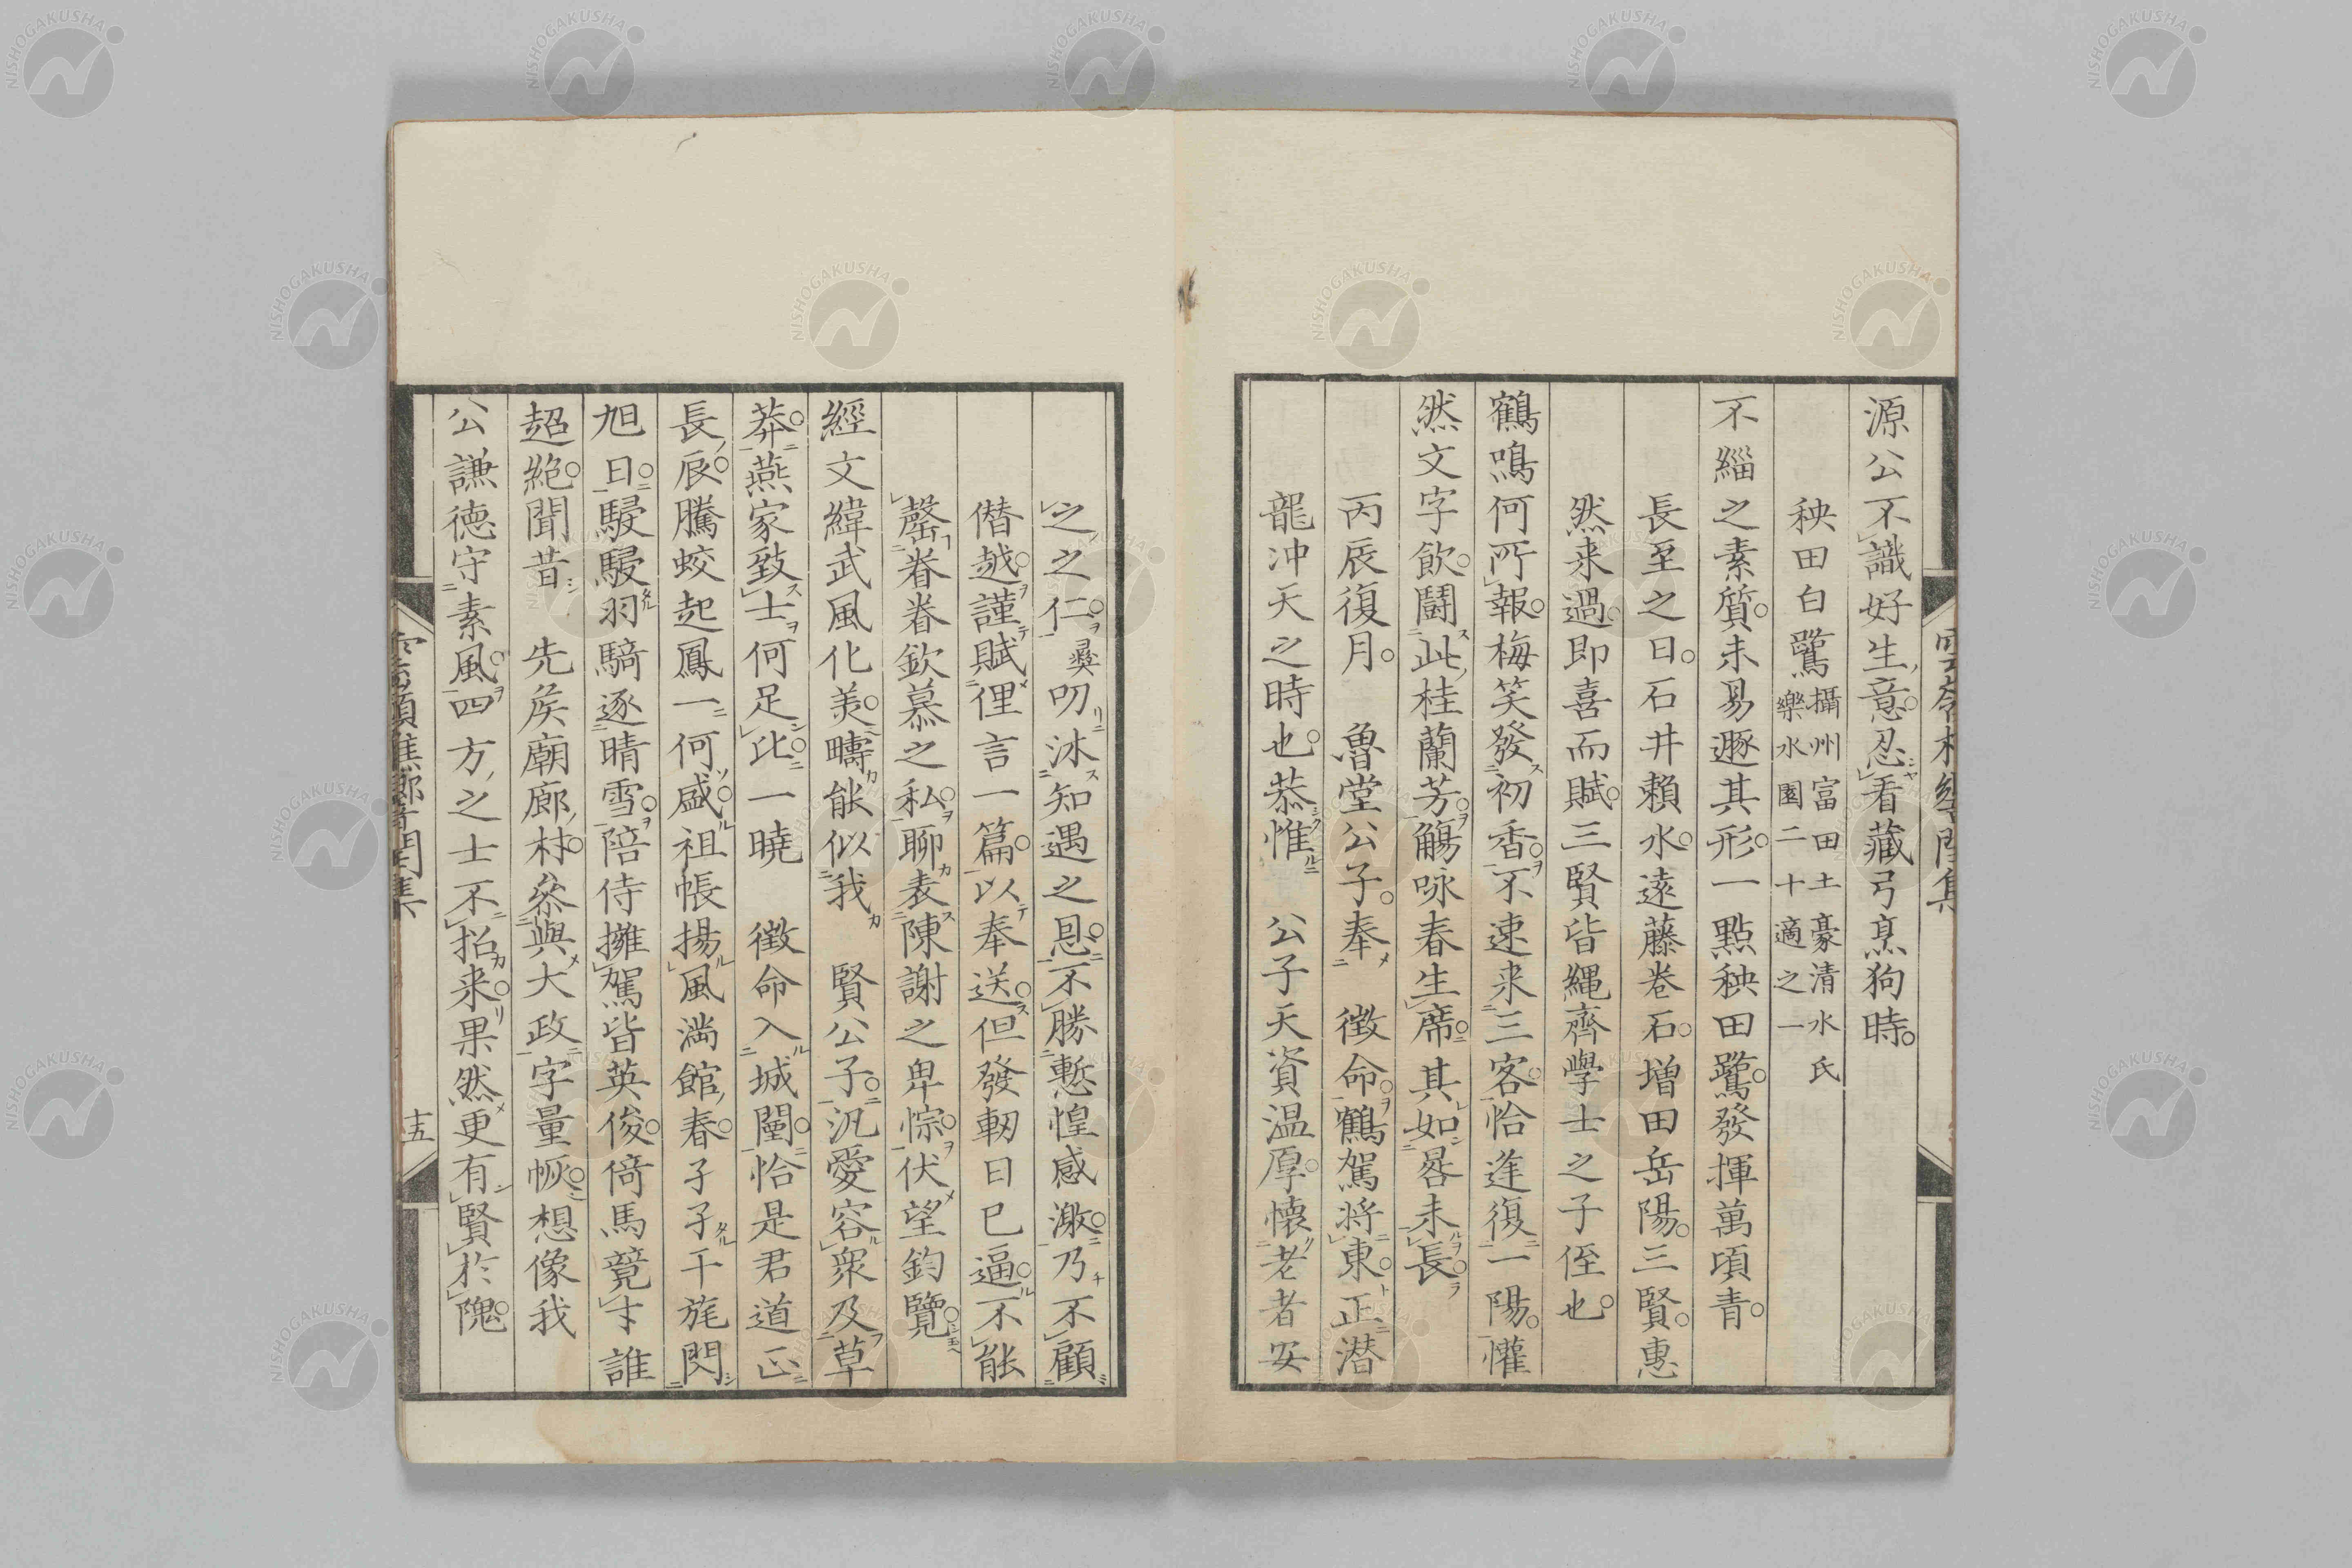 源公不識好生意忍看藏弓烹狗時
秧田白鷺攝州富田土豪清水氏樂水園二十適之一
不緇之素質未易遯其形一點秧田鷺發揮萬頃青
長至之日石井賴水遠藤卷石增田岳陽三賢惠
然来過即喜而賦三賢皆縄齊學士之子侄也
鶴鳴何所報梅笑發初香不速来三客恰逢復一陽懽
然文字飲鬪此桂蘭芳觴咏春生席其如晷未長
丙辰復月　魯堂公子奉　徵命鶴駕將東正潜
龍冲天之時也恭惟　公子天資温厚懐老者安
之之仁彛叨沐知遇之恩不勝慙惶感激乃不顧
僣越謹賦俚言一篇以奉送但發軔日已逼不能
罄眷眷欽慕之私聊表陳謝之卑悰伏望鈞覽
經文緯武風化美疇能似我　賢公子汎愛容衆及草
莽燕家致士何足比一曉　徴命入城闉恰是君道正
長辰騰蛟起鳳一何盛祖帳揚風満館春孑孑干旄閃
旭日駸駸羽騎逐晴雪陪侍擁駕皆英俊倚馬竟才誰
超絶聞昔　先矦廟廊村叅與大政字量恢想像我
公謙徳守素風四方之士不招来果然更有賢於隗
十五
NISHOGAKUSHA